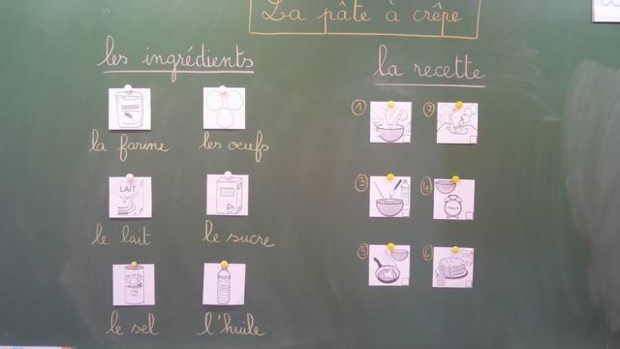 La pâte à crêpe
les ingrédients
la farine
les oeufs
LAIT
le lait
le sucre
le sel
l'huile
la recette
1
2
3
4
5
6